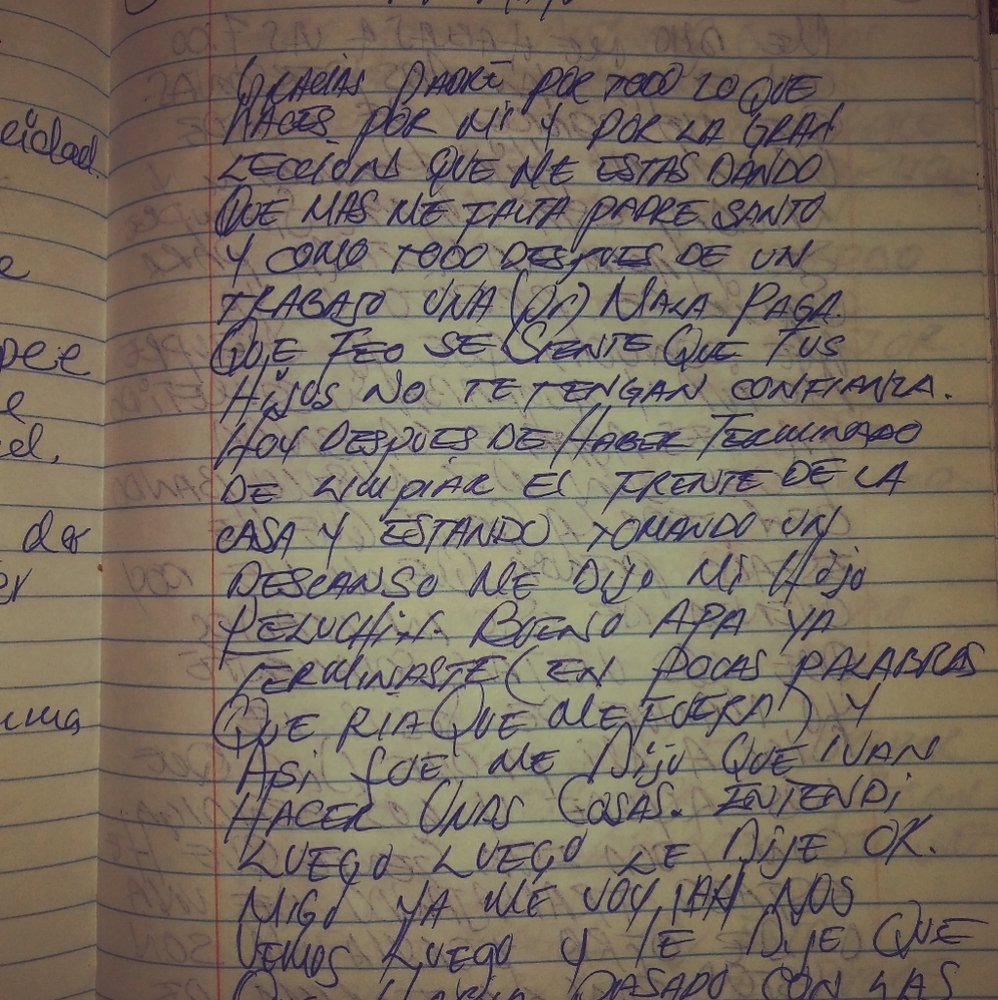 GRACIAS PADRE POR TODO LO QUE
HACES POR MI Y POR LA GRAN
LECCIONS QUE ME ESTAS DANDO
QUE MAS ME FALTA PADRE SANTO
Y COMO TODO DESPUES DE UN
TRABAJO UNA MALA PAGA.
QUE FEO SE SIENTE QUE TUS
HIJOS NO TE TENGAN CONFIANZA.
HOY DESPUES DE HABER TERMINADO
DE LIMPIAR EL FRENTE DE LA
CASA Y ESTANDO TOMANDO UN
DESCANSO ME DIJO MI HIJO
PELUCHIN. BUENO APA YA
TERMINASTE (EN POCAS PALABRAS
QUE RIA QUE ME FUERA) Y
ASI FUE, ME DIJO QUE IVAN
HACER UNAS COSAS. ENTENDI
LUEGO LUEGO LE DIJE OK.
MIGO YA ME VOY, NOS
VEMOS LUEGO Y LE DIJE QUE
PASADO CON LAS
eidad.
pee
der